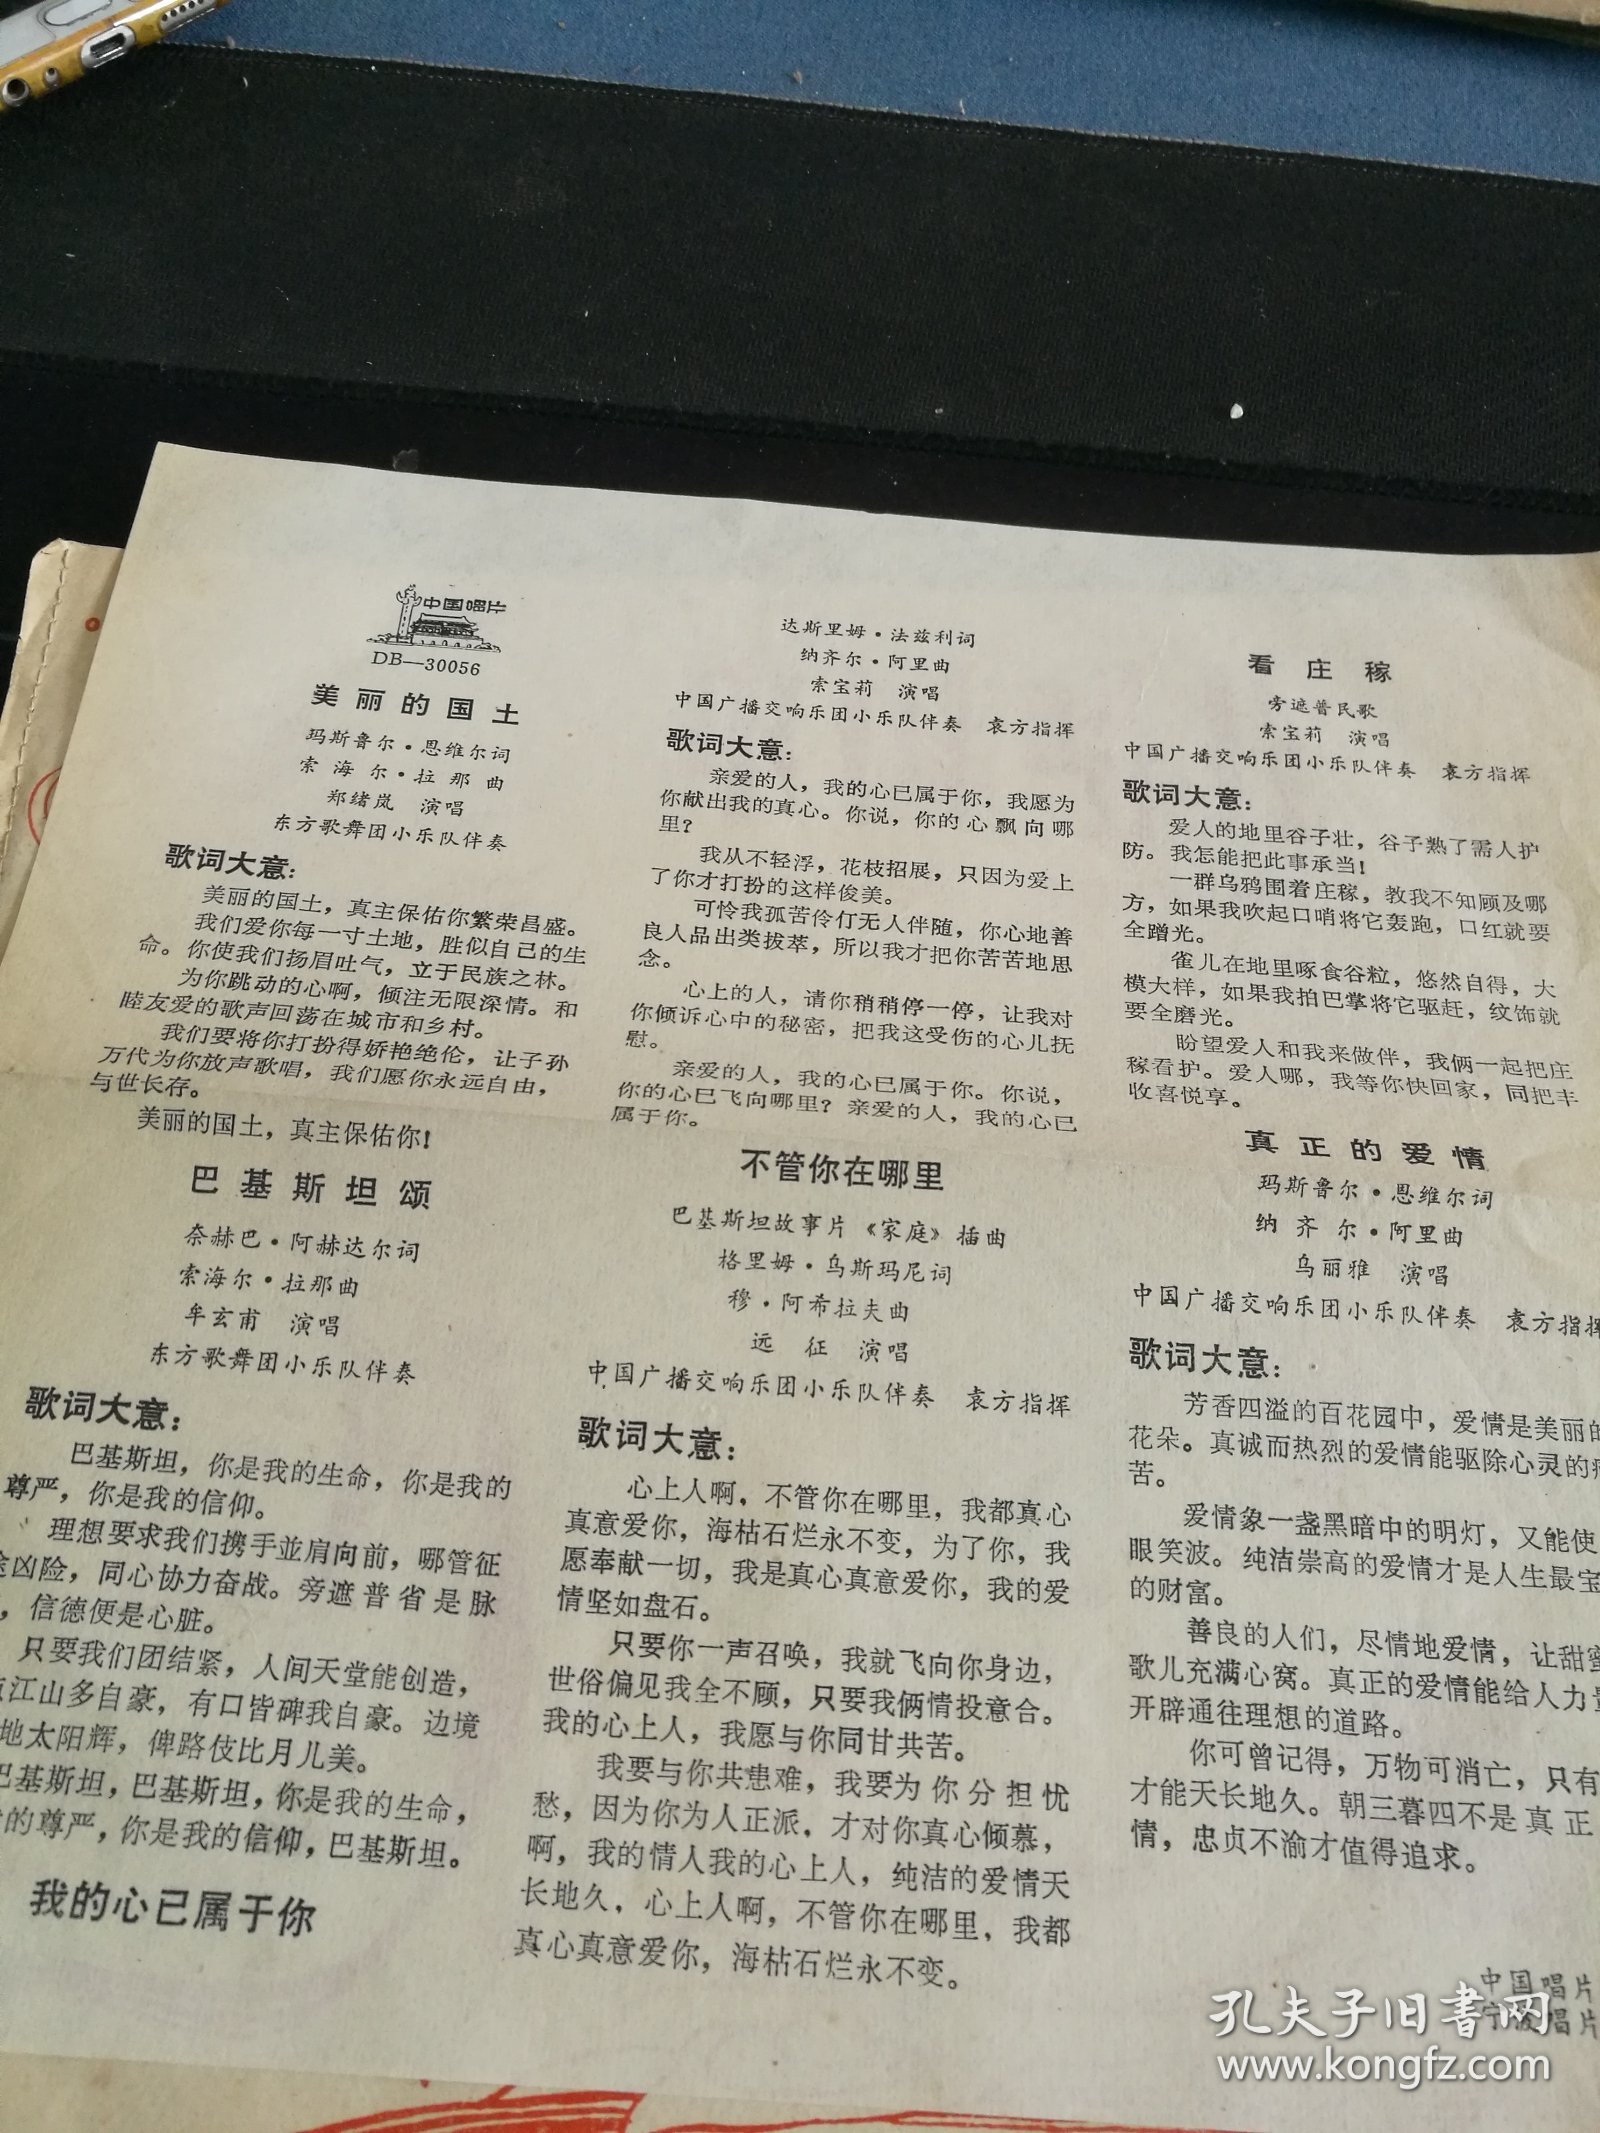 中国唱片
DB—30056
美丽的国土
玛斯鲁尔·恩维尔词
索海尔·拉那曲
郑绪岚 演唱
东方歌舞团小乐队伴奏
歌词大意：
美丽的国土，真主保佑你繁荣昌盛。
我们爱你每一寸土地，胜似自己的生
命。你使我们扬眉吐气，立于民族之林。
为你跳动的心啊，倾注无限深情。和
睦友爱的歌声回荡在城市和乡村。
我们要将你打扮得娇艳绝伦，让子孙
万代为你放声歌唱，我们愿你永远自由，
与世长存。
美丽的国土，真主保佑你！
巴基斯坦颂
奈赫巴·阿赫达尔词
索海尔·拉那曲
牟玄甫 演唱
东方歌舞团小乐队伴奏
歌词大意：
巴基斯坦，你是我的生命，你是我的
尊严，你是我的信仰。
理想要求我们携手並肩向前，哪管征
途凶险，同心协力奋战。旁遮普省是脉
，信德便是心脏。
只要我们团结紧，人间天堂能创造，
江山多自豪，有口皆碑我自豪。边境
地太阳辉，俾路伎比月儿美。
巴基斯坦，巴基斯坦，你是我的生命，
的尊严，你是我的信仰，巴基斯坦。
我的心已属于你
达斯里姆·法兹利词
纳齐尔·阿里曲
索宝莉 演唱
中国广播交响乐团小乐队伴奏 袁方指挥
歌词大意：
亲爱的人，我的心已属于你，我愿为
你献出我的真心。你说，你的心飘向哪
里？
我从不轻浮，花枝招展，只因为爱上
了你才打扮的这样俊美。
可怜我孤苦伶仃无人伴随，你心地善
良人品出类拔萃，所以我才把你苦苦地思
念。
心上的人，请你稍稍停一停，让我对
你倾诉心中的秘密，把我这受伤的心儿抚
慰。
亲爱的人，我的心已属于你。你说，
你的心已飞向哪里？亲爱的人，我的心已
属于你。
不管你在哪里
巴基斯坦故事片《家庭》插曲
格里姆·乌斯玛尼词
穆·阿希拉夫曲
远征 演唱
中国广播交响乐团小乐队伴奏 袁方指挥
歌词大意：
心上人啊，不管你在哪里，我都真心
真意爱你，海枯石烂永不变，为了你，我
愿奉献一切，我是真心真意爱你，我的爱
情坚如盘石。
只要你一声召唤，我就飞向你身边，
世俗偏见我全不顾，只要我俩情投意合。
我的心上人，我愿与你同甘共苦。
我要与你共患难，我要为你分担忧
愁，因为你为人正派，才对你真心倾慕，
啊，我的情人我的心上人，纯洁的爱情天
长地久，心上人啊，不管你在哪里，我都
真心真意爱你，海枯石烂永不变。
看庄稼
旁遮普民歌
索宝莉 演唱
中国广播交响乐团小乐队伴奏 袁方指挥
歌词大意：
爱人的地里谷子壮，谷子熟了需人护
防。我怎能把此事承当！
一群乌鸦围着庄稼，教我不知顾及哪
方，如果我吹起口哨将它轰跑，口红就要
全蹭光。
雀儿在地里啄食谷粒，悠然自得，大
模大样，如果我拍巴掌将它驱赶，纹饰就
要全磨光。
盼望爱人和我来做伴，我俩一起把庄
稼看护。爱人哪，我等你快回家，同把丰
收喜悦享。
真正的爱情
玛斯鲁尔·恩维尔词
纳齐尔·阿里曲
乌丽雅 演唱
中国广播交响乐团小乐队伴奏 袁方指挥
歌词大意：
芳香四溢的百花园中，爱情是美丽的
花朵。真诚而热烈的爱情能驱除心灵的
苦。
爱情象一盏黑暗中的明灯，又能使
眼笑波。纯洁崇高的爱情才是人生最宝
的财富。
善良的人们，尽情地爱情，让甜蜜
歌儿充满心窝。真正的爱情能给人力量
开辟通往理想的道路。
你可曾记得，万物可消亡，只有
才能天长地久。朝三暮四不是真正
情，忠贞不渝才值得追求。
中国唱片
宁波唱片
孔夫子旧书网
www.kongfz.com